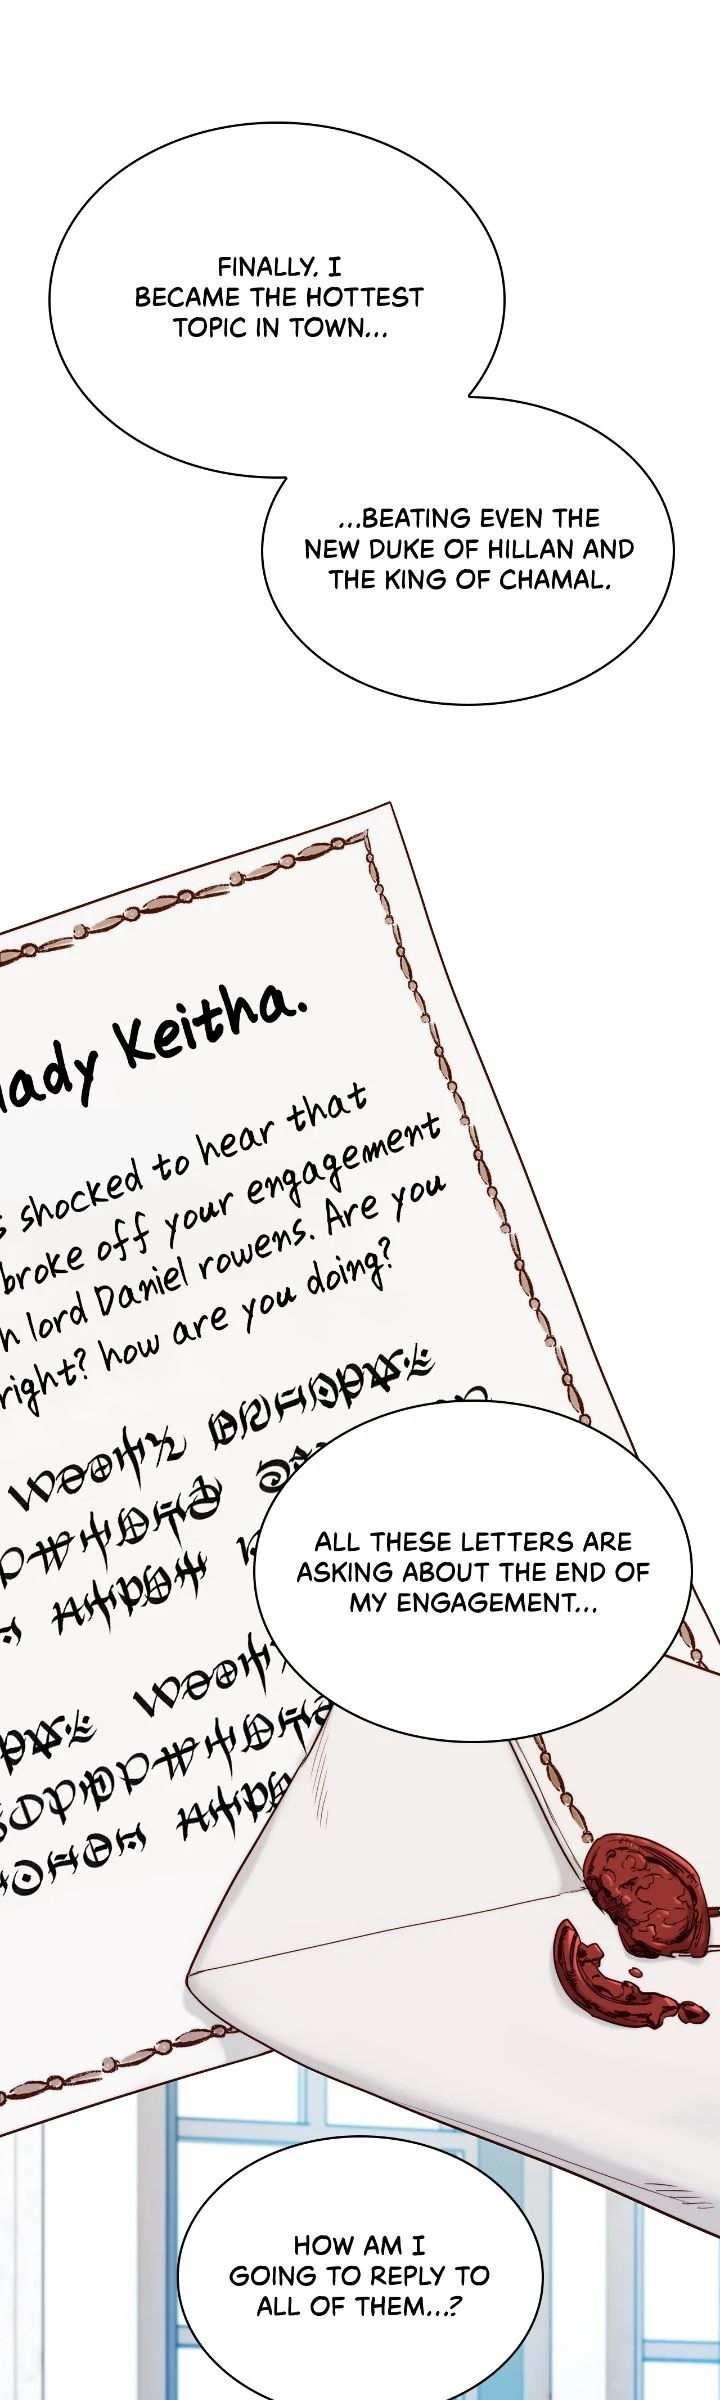 FINALLY. I
BECAME THE HOTTEST
TOPIC IN TOWN...
...BEATING EVEN THE
NEW DUKE OF HILLAN AND
THE KING OF CHAMAL.
lady Keitha.
shocked to hear that
broke off your engagement
lord Daniel rowens. Are you
right? how are you doing?
ALL THESE LETTERS ARE
ASKING ABOUT THE END OF
MY ENGAGEMENT...
HOW AM I
GOING TO REPLY TO
ALL OF THEM...?